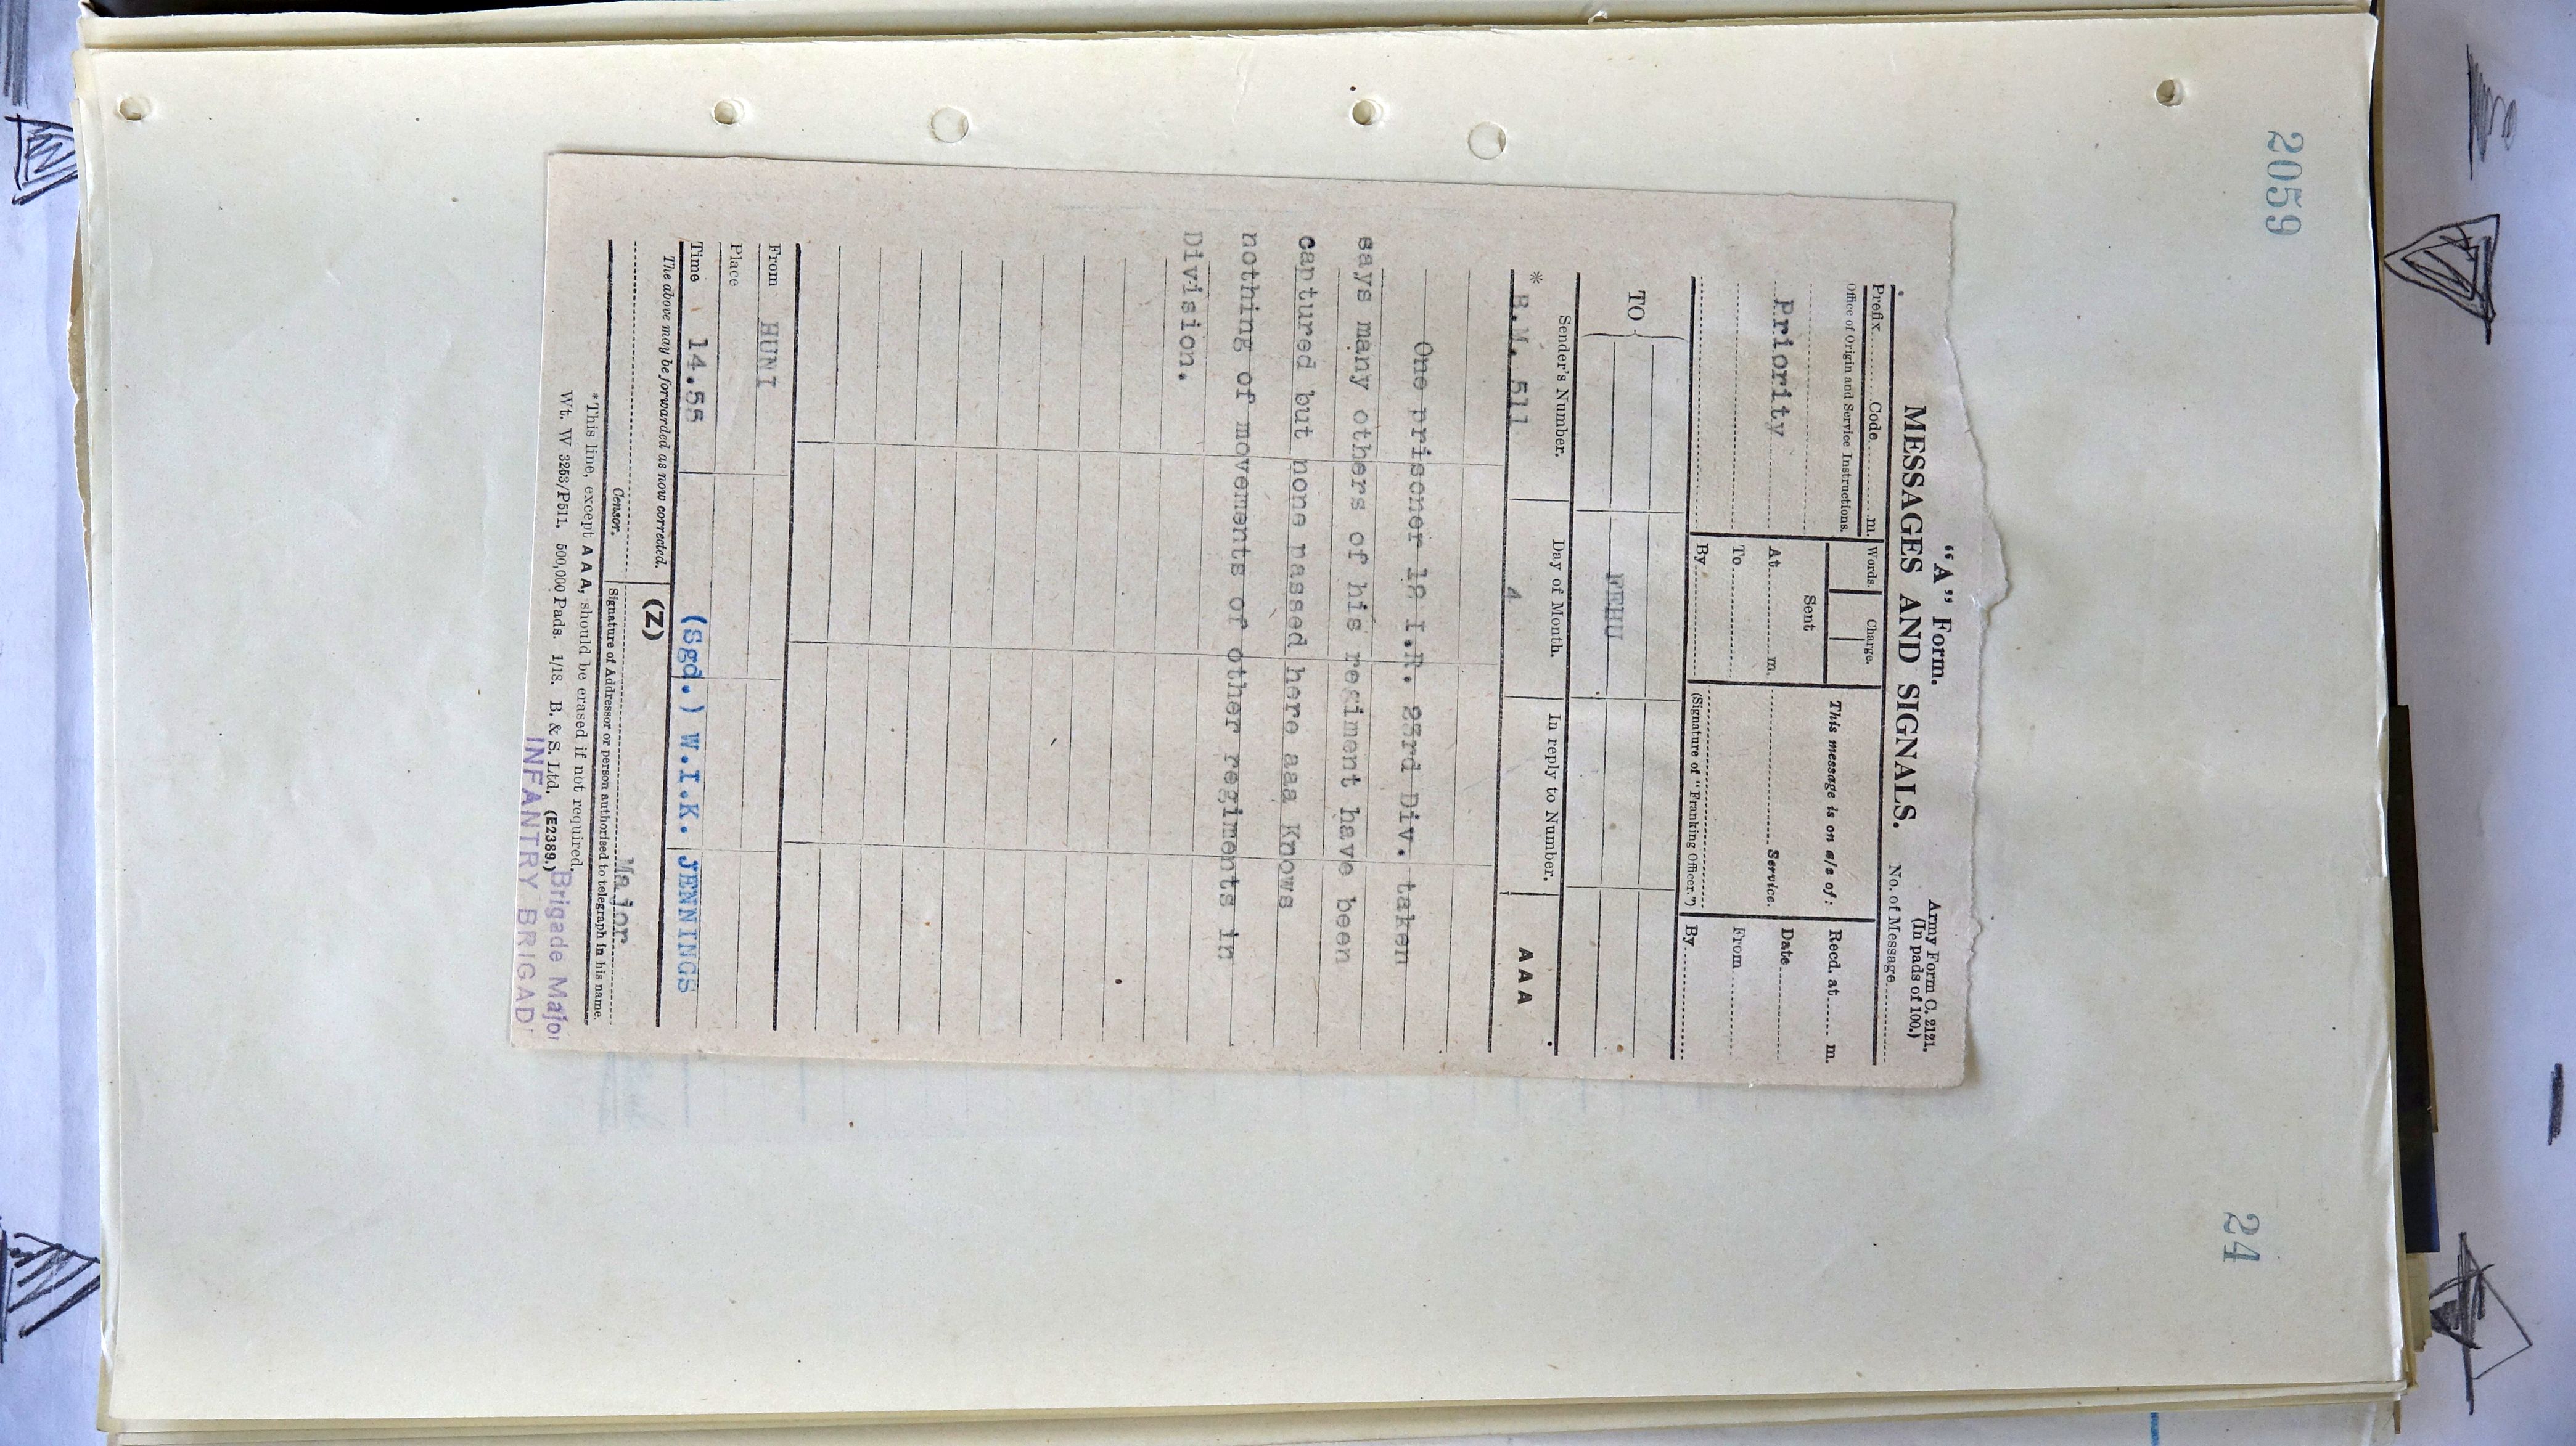 2059
24
"A" Form.
Army Form C. 2121.
(In pads of 100.)
MESSAGES AND SIGNALS.
No. of Message
Prefix Code m.
Words. Charge.
This message is on a/c of:
Recd. at m.
Office of Origin and Service Instructions.
Sent
Priority
At m.
Service.
Date
To
From
By
(Signature of "Franking Officer.")
By
TO
FEHU
Sender's Number.
Day of Month.
In reply to Number.
AAA
* B.M. 511
4
One prisoner 12 I.R. 23rd Div. taken
says many others of his regiment have been
captured but none passed here aaa Knows
nothing of movements of other regiments in
Division.
From HUNI
Place
Time 14.55
(Sgd.) W.I.K. JENNINGS
The above may be forwarded as now corrected.
(Z)
Major
Censor.
Signature of Addressor or person authorised to telegraph in his name.
*This line, except AAA, should be erased if not required.
Wt. W 3253/P511. 500,000 Pads. 1/18. B. & S. Ltd. (E2389.)
Brigade Major
INFANTRY BRIGAD